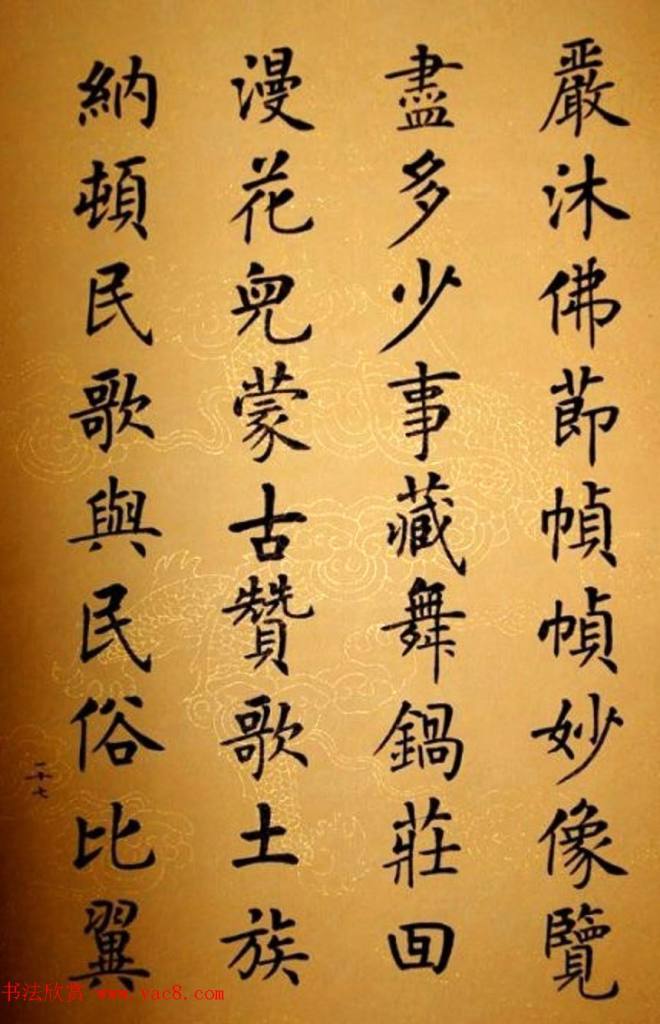 嚴沐佛節幀幀妙像覽
盡多少事藏舞鍋莊回
漫花兒蒙古贊歌土族
納頓民歌與民俗比翼
二十七
书法欣赏-www.yac8.com